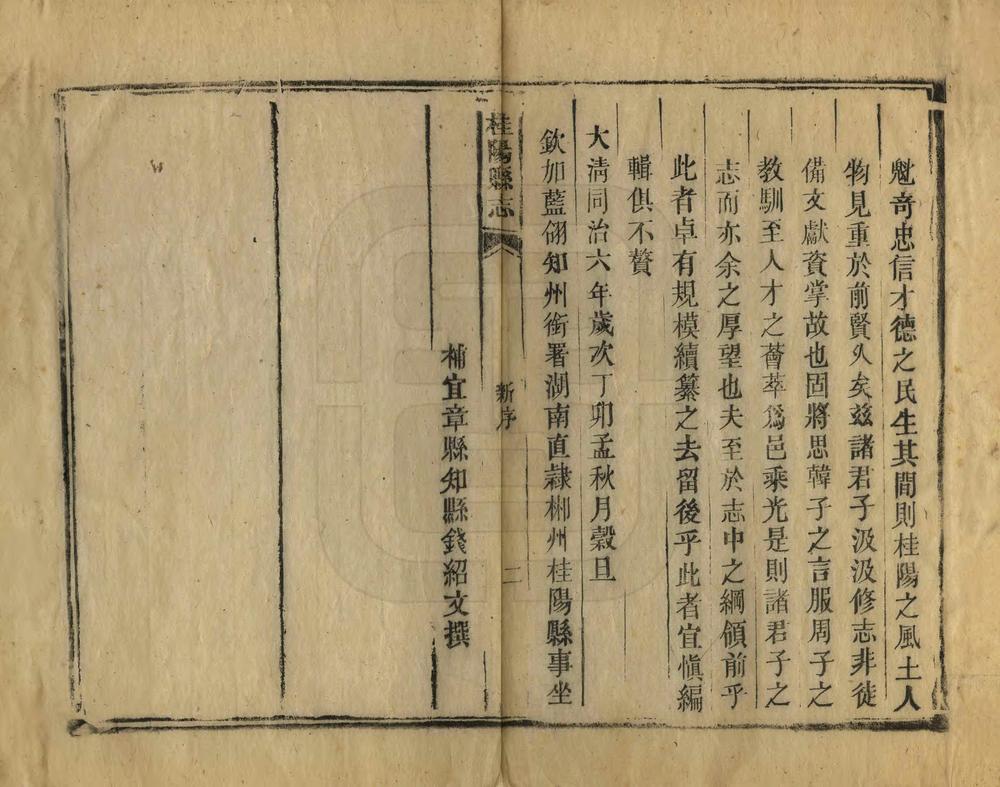 魁奇忠信才德之民生其間則桂陽之風土人
物見重於前賢久矣茲諸君子汲汲修志非徒
備文獻資掌故也固將思韓子之言服周子之
教馴至人才之薈萃爲邑乘光是則諸君子之
志而亦余之厚望也夫至於志中之綱領前乎
此者卓有規模續纂之去留後乎此者宜愼編
輯俱不贅
大淸同治六年歲次丁卯孟秋月穀旦
欽加藍翎知州銜署湖南直隷郴州桂陽縣事坐
桂陽縣志
新序
二
補宜章縣知縣錢紹文撰